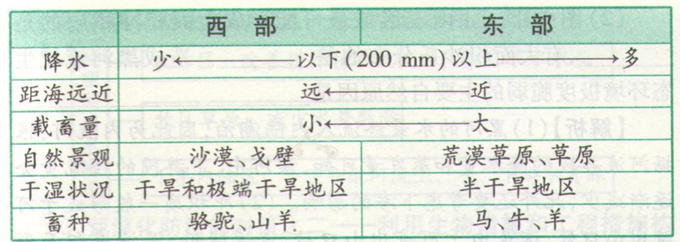 西部 东部
降水 少← 以下(200 mm)以上 →多
距海远近 远← 近
载畜量 小← 大
自然景观 沙漠、戈壁 荒漠草原、草原
干湿状况 干旱和极端干旱地区 半干旱地区
畜种 骆驼、山羊 马、牛、羊